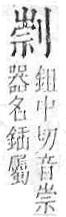 鉏中切音崇
器名鍤屬